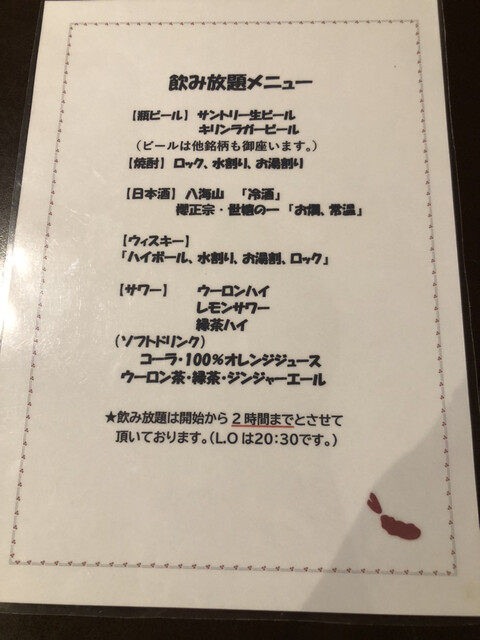 飲み放題メニュー
【瓶ビール】 サントリー生ビール
キリンラガービール
(ビールは他銘柄も御座います。)
【焼酎】 ロック、水割り、お湯割り
【日本酒】 八海山 「冷酒」
櫻正宗・世嬉の一 「お燗、常温」
【ウィスキー】
「ハイボール、水割り、お湯割、ロック」
【サワー】 ウーロンハイ
レモンサワー
緑茶ハイ
(ソフトドリンク)
コーラ・100%オレンジジュース
ウーロン茶・緑茶・ジンジャーエール
★飲み放題は開始から2時間までとさせて
頂いております。(L.Oは20:30です。)